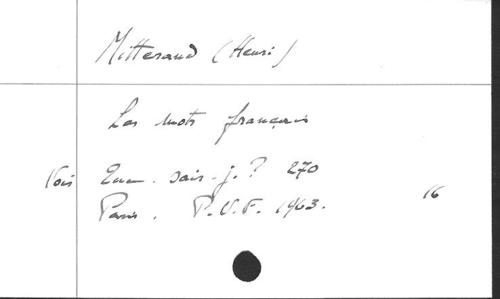 Mitterand (Henri)
Les mots français
Que . sais-j. ? 270
Paris . P.U.F. 1963.
16